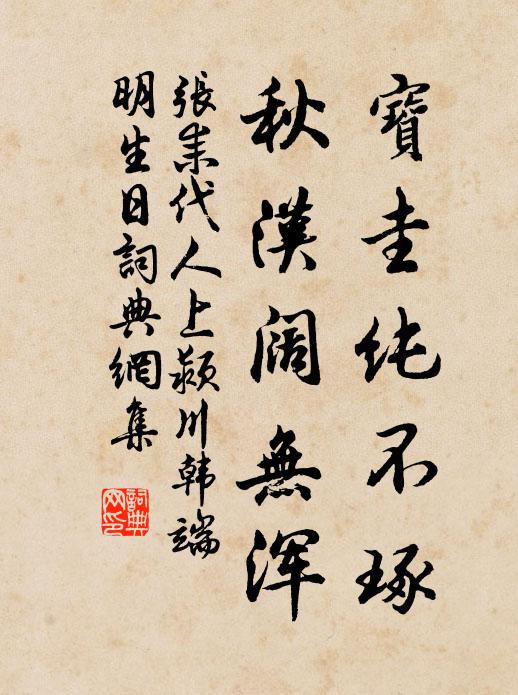 寶圭纯不琢
秋漢闊無渾
張耒代人上颍川韩端
明生日詞典網集
詞典網印